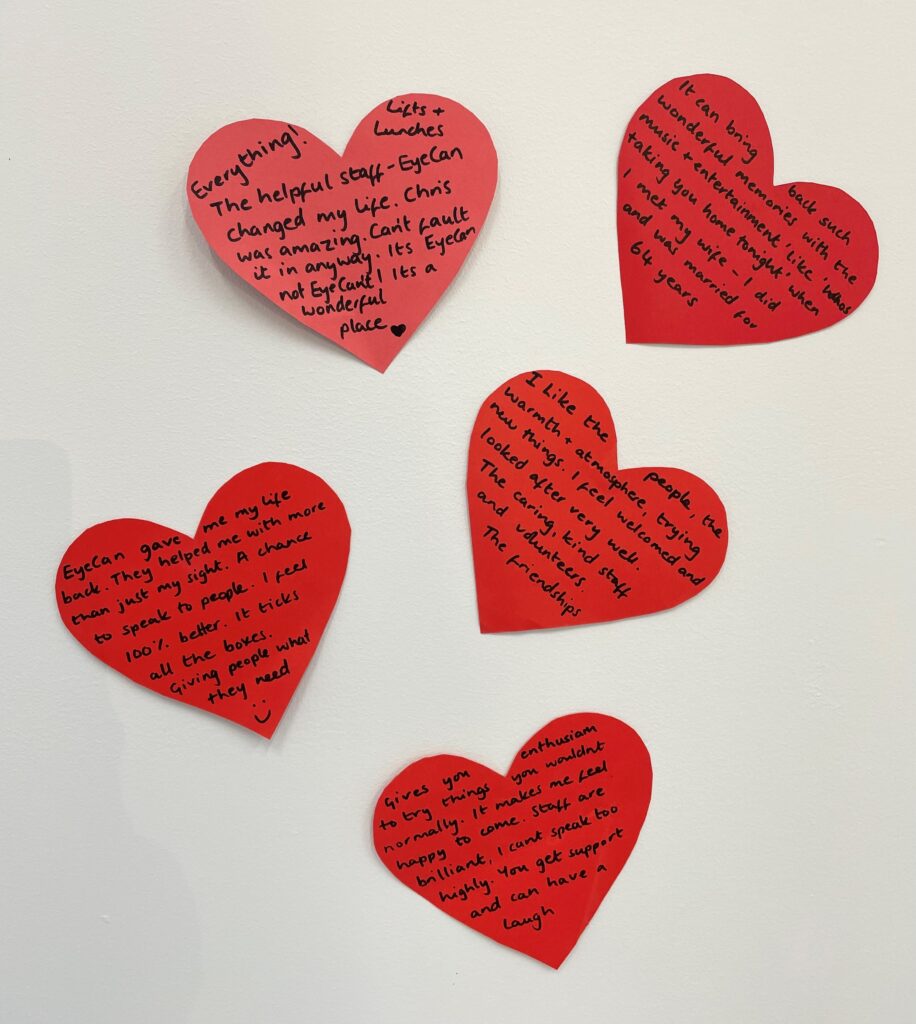 Everything!
Lifts +
Lunches
The helpful staff - EyeCan
changed my life. Chris
was amazing. Cant fault
it in anyway. Its EyeCan
not EyeCant! Its a
wonderful
place ♥
It can bring
back such
wonderful memories with the
music + entertainment, like 'whos
taking you home tonight' when
I met my wife - I did
and was married for
64 years
I like the
people, the
warmth + atmosphere, trying
new things. I feel welcomed and
looked after very well.
The caring, kind staff
and volunteers.
The friendships
EyeCan gave me my life
back. They helped me with more
than just my sight. A chance
to speak to people. I feel
100% better. It ticks
all the boxes.
Giving people what
they need
Gives you enthusiam
to try things you wouldnt
normally. It makes me feel
happy to come. Staff are
brilliant, I cant speak too
highly. You get support
and can have a
laugh